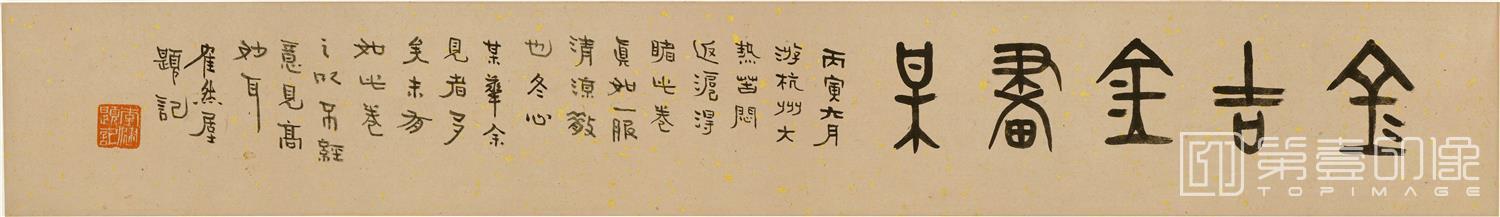 金吉金畫某
丙寅六月
游杭州大
热苦悶
返滬得
睹此卷
真如一服
清涼散
也冬心
某華余
見者多
矣未有
如此卷
之以不經
意見高
妙耳
然居
題記
第壹印像
TOPIMAGE